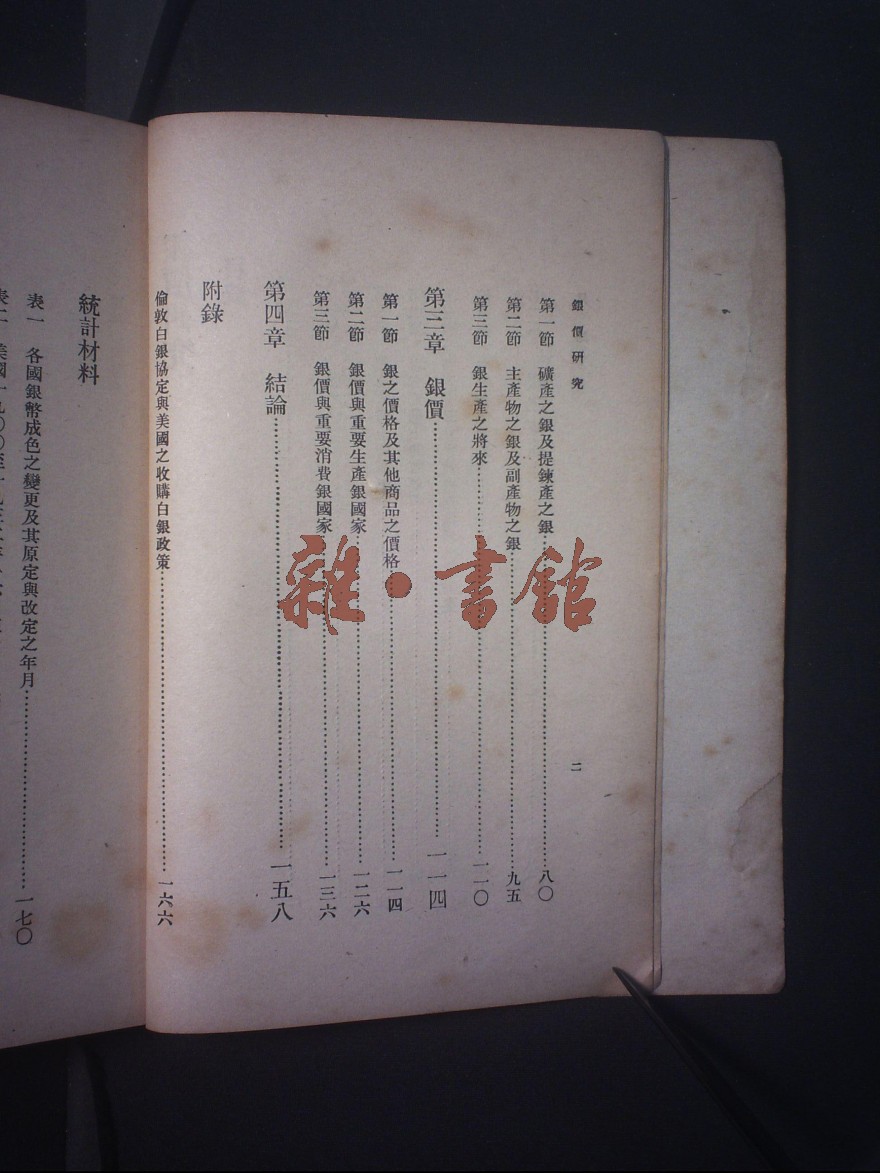 銀價研究
二
第一節　礦產之銀及提鍊產之銀……八〇
第二節　主產物之銀及副產物之銀……九五
第三節　銀生產之將來……一一〇
第三章　銀價……一一四
第一節　銀之價格及其他商品之價格……一一四
第二節　銀價與重要生產銀國家……一二六
第三節　銀價與重要消費銀國家……一三六
第四章　結論……一五八
附錄
倫敦白銀協定與美國之收購白銀政策……一六六
統計材料
表一　各國銀幣成色之變更及其原定與改定之年月……一七〇
雜·書館